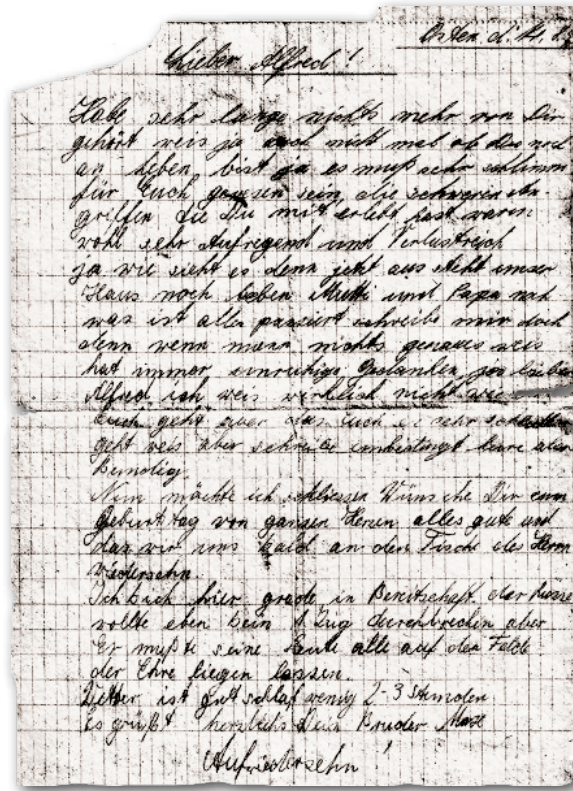 Osten d. 14.
Lieber Alfred!
Habe sehr lange nichts mehr von Dir
gehört weis ja auch nicht mal ob du noch
am Leben bist ja es muß sehr schlimm
für Euch gewesen sein, die schweren An-
griffen die Du mit erlebt hast waren
wohl sehr Aufregend und Verlustreich
ja wie sieht es denn jetzt aus steht unser
Haus noch leben Mutti und Papa noch
was ist alles passiert schreibe mir doch
denn wenn mann nichts genaues weis
hat immer unruhige Gedanken, ja lieber
Alfred ich weis wirklich nicht wie
Euch geht aber das Euch es sehr schlecht
geht weis aber schreibe umbedingt
Nun möchte ich schliessen Wünsche Dir zum
Geburtstag von ganzen Herzen alles gute und
das wir uns bald an den Tisch des Herrn
wiedersehn.
Ich hier grade in Bereitschaft der Russe
wollte eben beim Zug durchbrechen aber
Er mußte seine Leute alle auf den Felde
der Ehre liegen lassen.
Wetter ist gut schlaf wenig 2-3 Stunden
Es grüßt herzlichs Dein Bruder Max
Aufwiedersehn!